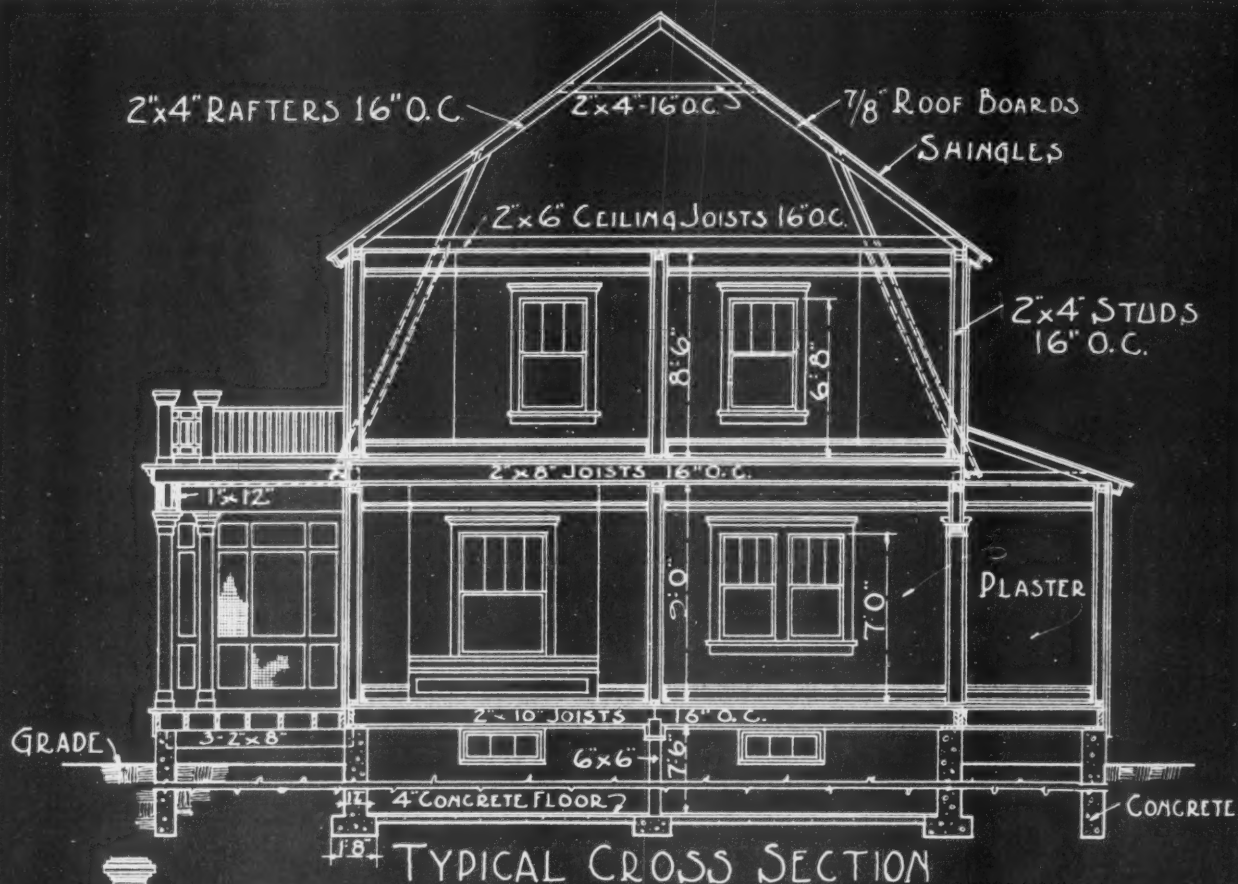 2"x4" RAFTERS 16" O.C.
2"x4"-16" O.C.
7/8" ROOF BOARDS
SHINGLES
2"x6" CEILING JOISTS 16" O.C.
2"x4" STUDS
16" O.C.
8'6"
6'8"
2"x8" JOISTS 16" O.C.
1"x12"
9'0"
7'0"
PLASTER
2"x10" JOISTS 16" O.C.
GRADE
3-2"x8"
6"x6"
7'6"
12"
4" CONCRETE FLOOR
CONCRETE
1'8"
TYPICAL CROSS SECTION